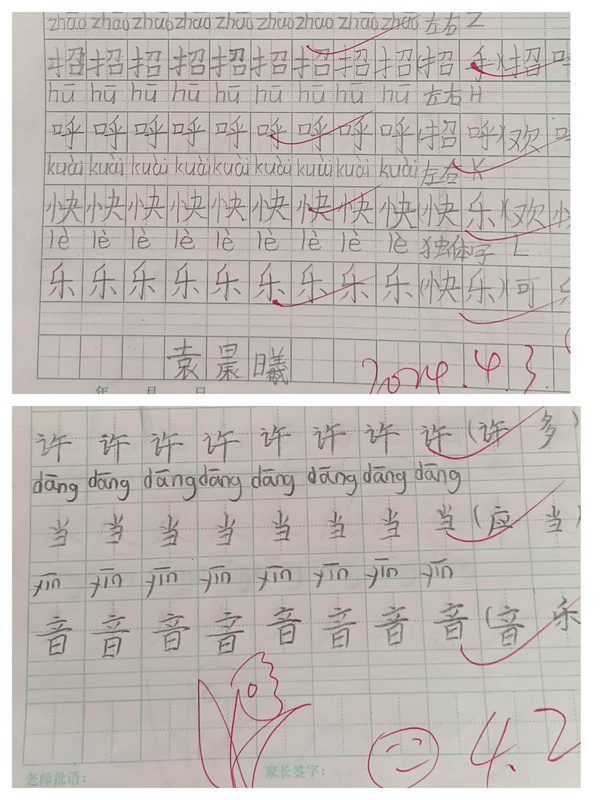 zhāo zhāo zhāo zhāo zhāo zhāo zhāo zhāo zhāo 左右 Z
招 招 招 招 招 招 招 招 招 (招 手) 招
hū hū hū hū hū hū hū hū hū 左右 H
呼 呼 呼 呼 呼 呼 呼 呼 呼 (招 呼) 欢
kuài kuài kuài kuài kuài kuài kuài kuài kuài 左右 K
快 快 快 快 快 快 快 快 快 (快 乐) 欢
lè lè lè lè lè lè lè lè lè 独体字 L
乐 乐 乐 乐 乐 乐 乐 乐 乐 (快 乐) 可
袁 晨 曦 2024.4.3.
年 月 日
许 许 许 许 许 许 许 许 (许 多
dāng dāng dāng dāng dāng dāng dāng dāng
当 当 当 当 当 当 当 当 (应 当)
yīn yīn yīn yīn yīn yīn yīn yīn
音 音 音 音 音 音 音 音 (音 乐
4.2
老师批语: 家长签字: